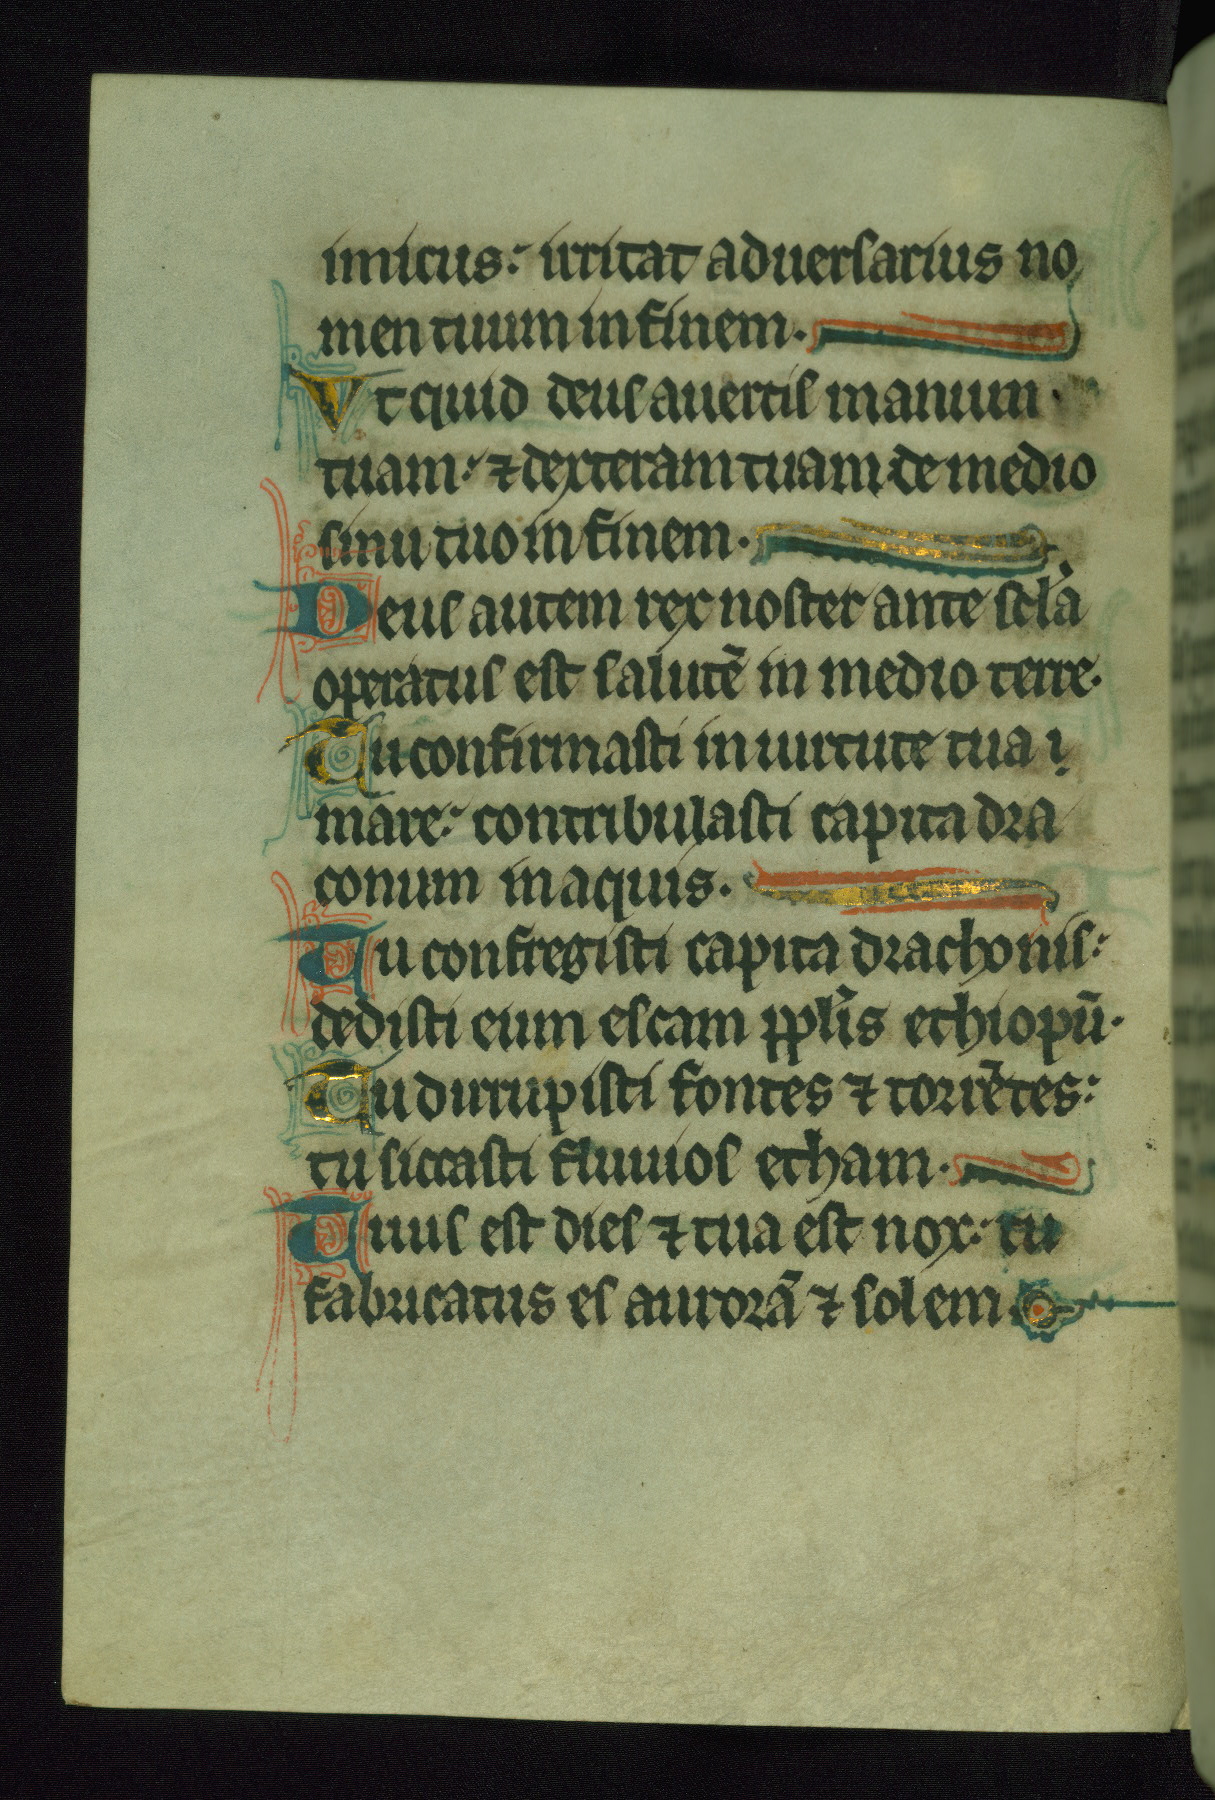 imicus: irritat aduersarius no
men tuum in finem.
Vt quid deus auertis manum
tuam: ⁊ dexteram tuam de medio
sinu tuo in finem.
Deus autem rex noster ante scła
operatus est salutē in medio terre.
Tu confirmasti in uirtute tua ı
mare: contribulasti capita dra
conum in aquis.
Tu confregisti capita drachonis:
dedisti eum escam pplis ethiopū.
Tu dirrupisti fontes ⁊ torrētes:
tu siccasti fluuios etham.
Tuus est dies ⁊ tua est nox: tu
fabricatus es aurorā ⁊ solem.